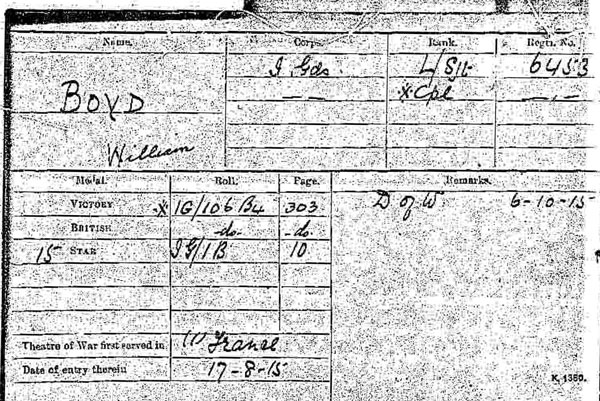 Name. Corps. Rank. Regtl. No.
BOYD I. Gds. L/Sjt 6453
William — — X Cpl — „ —
Medal. Roll. Page. Remarks.
VICTORY X IG/106 B4 303 D of W. 6-10-15
BRITISH -do- -do-
15 STAR IG/1B 10
Theatre of War first served in (1) France
Date of entry therein 17-8-15
K. 1380.